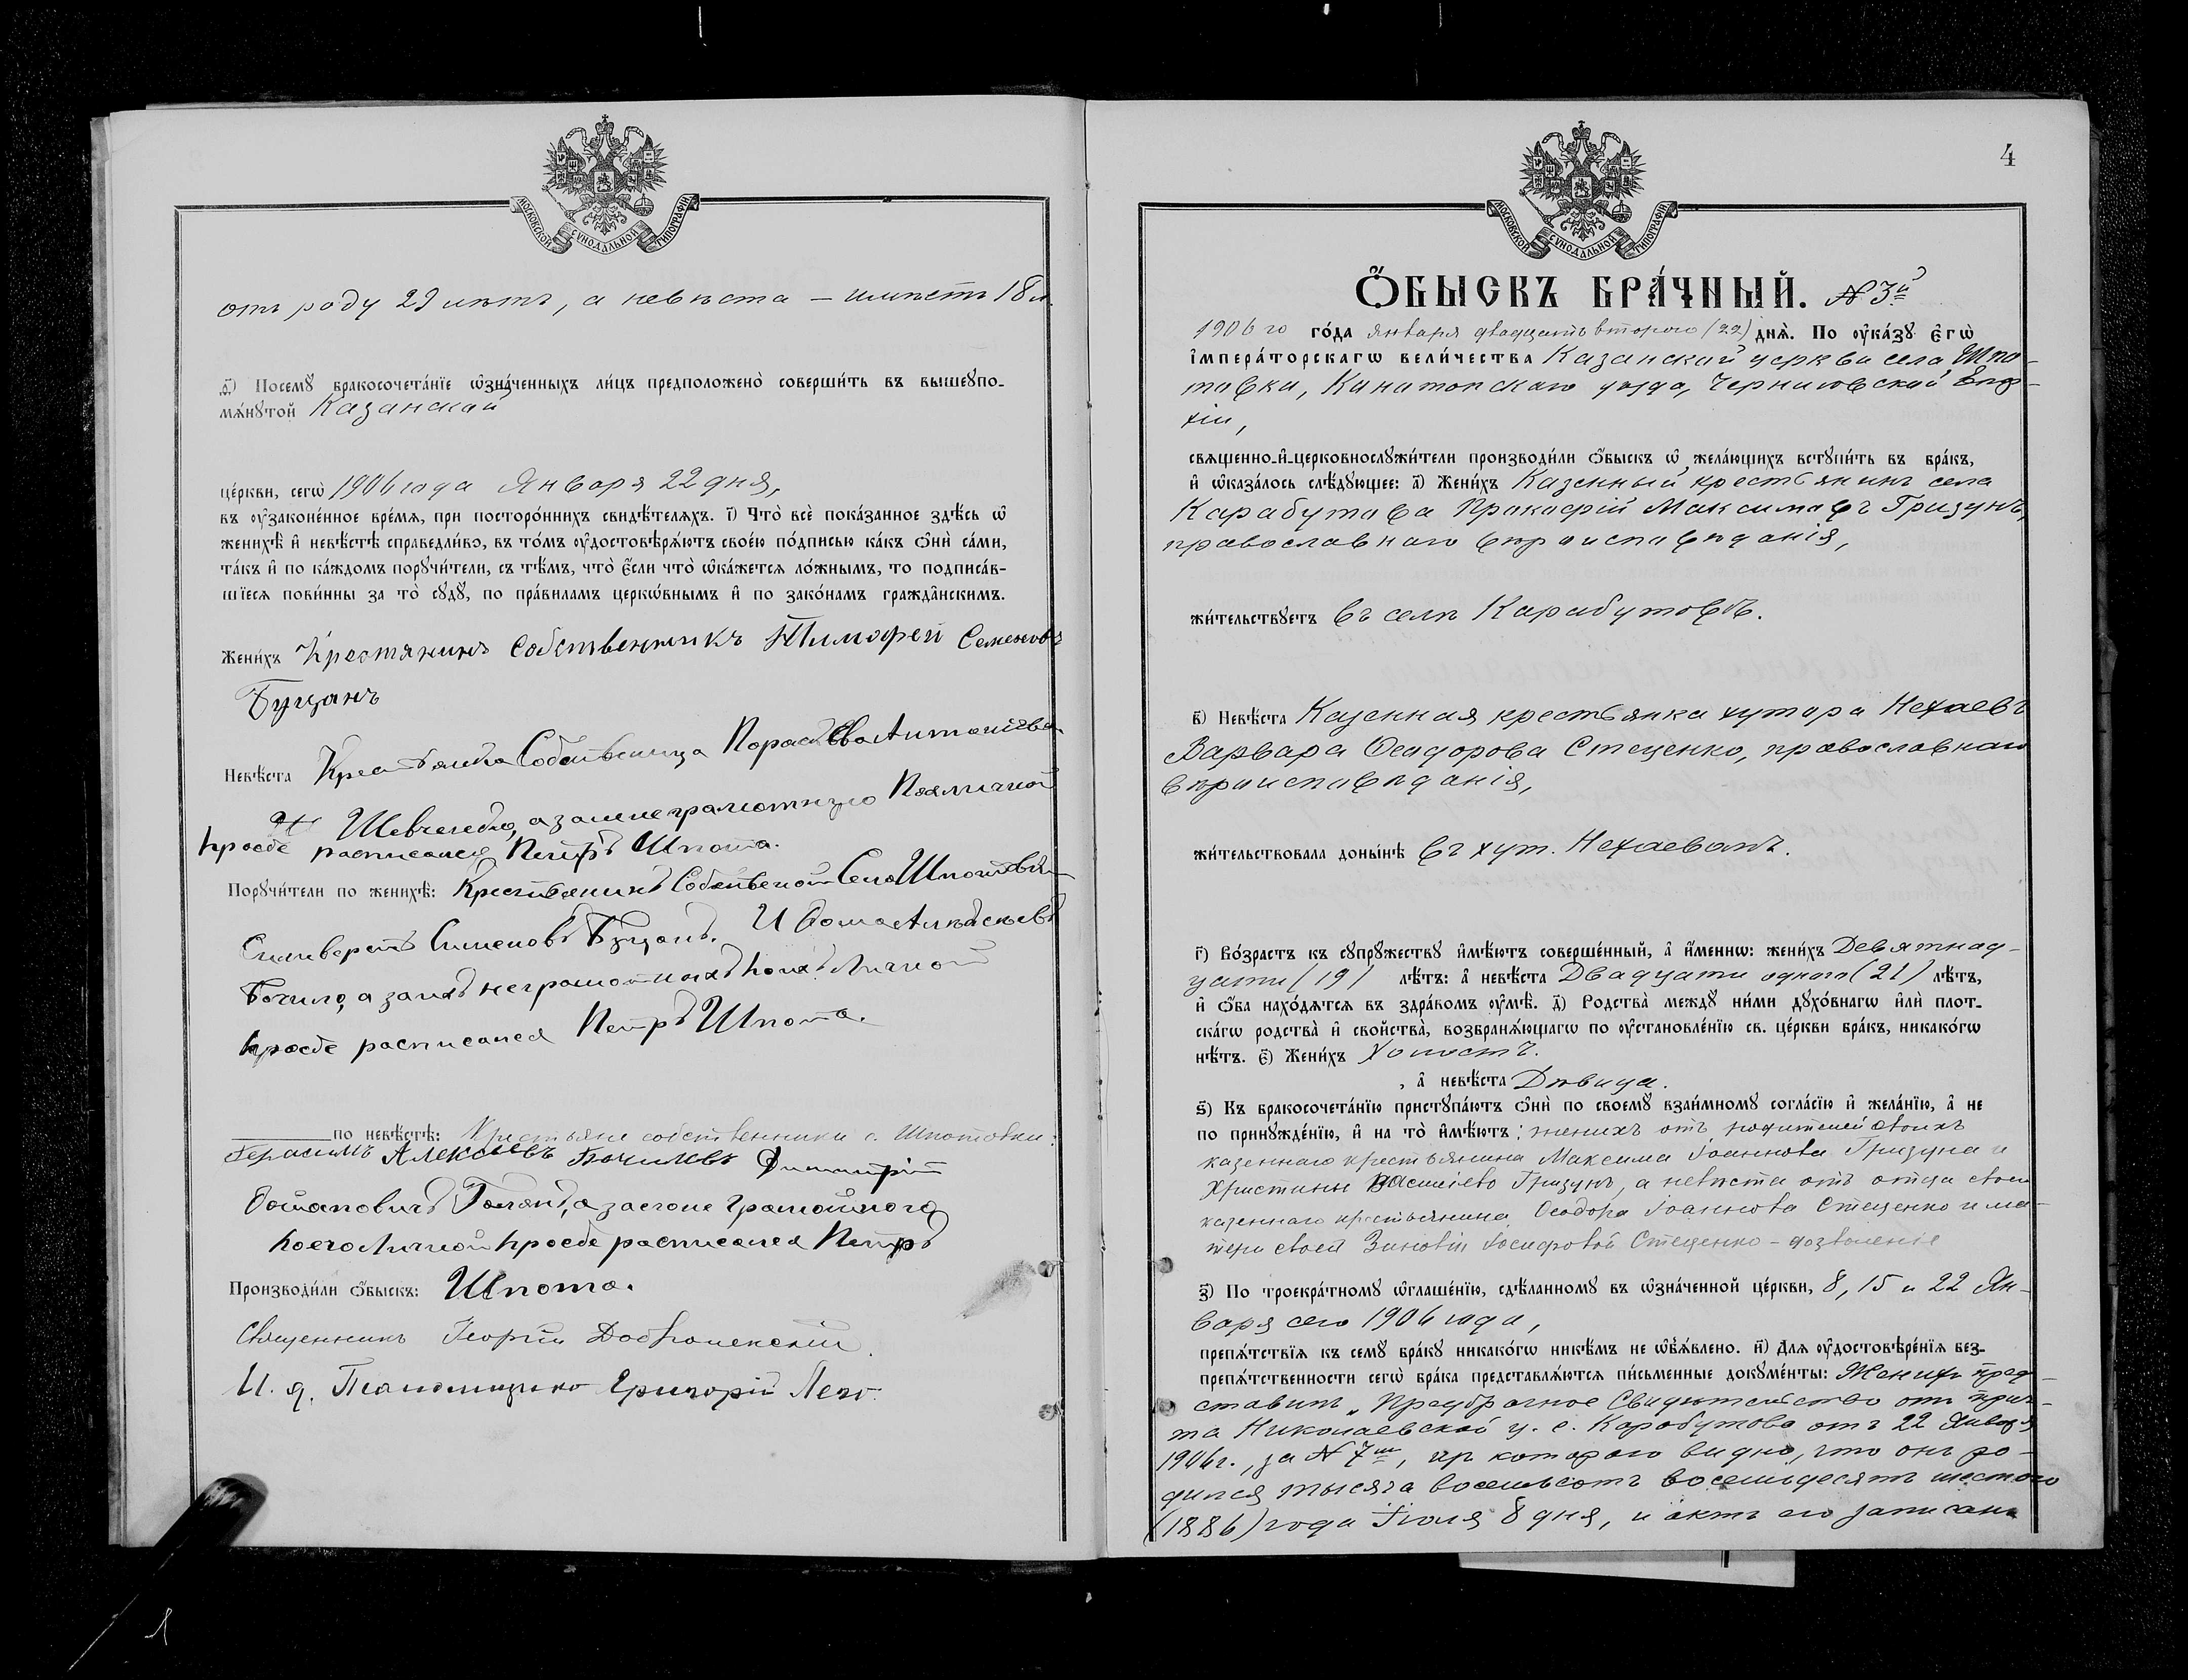 МОСКОВСКОЙ СѴНОДАЛЬНОЙ ТИПОГРАФІИ
отъ роду 29 лѣтъ, а невѣста – имѣетъ 18 л.
д҃) Посемꙋ̀ бракосочета́нїе ѡ҆зна́ченныхъ ли́цъ предположено̀ соверши́ть въ вышеꙋпо-
мѧ́нꙋтой Казанской
це́ркви, сегѡ̀ 1906 года Января 22 дня,
въ ᲂу҆законе́нное вре́мѧ, при посторо́ннихъ свидѣ́телѧхъ. і҃) Что̀ всѐ пока́занное здѣ́сь ѡ҆
женихѣ̀ и҆ невѣ́стѣ справедли́во, въ то́мъ ᲂу҆достовѣрѧ́ютъ свое́ю по́дписью ка́къ ѻ҆нѝ са́ми,
та́къ и҆ по ка́ждомъ порꙋчи́тели, съ тѣ́мъ, что̀ є҆́сли что̀ ѡ҆ка́жетсѧ ло́жнымъ, то подписа́в-
шїесѧ пови́нны за то̀ сꙋдꙋ̀, по пра́виламъ церкѡ́внымъ и҆ по зако́намъ гражда̑нскимъ.
Жени́хъ Крестянинъ Собственникъ Тимофей Семеновъ
Буцанъ
Невѣ́ста Крестьянка Собственица Антоніева
Шевченкова, а за нее грамотную
просбе расписался Петръ Шпота.
Порꙋчи́тели по женихѣ̀: Крестьянинъ Села
Силиверстъ Сименовъ Буцанъ. И Фома Алексеевъ
Бочило, а за нихъ неграмотныхъ Личной
просбе расписался Петръ Шпота.
по невѣ́стѣ: Крестьяне собственники с. Шпотовки:
Герасимъ Алексеевъ Бочилевъ Димитрій
а за его не грамотного
Личной просбе расписался Петръ
Производи́ли ѻ҆́быскъ: Шпота.
Священникъ Георгій
И. д. Псаломщика Григорій
4
МОСКОВСКОЙ СѴНОДАЛЬНОЙ ТИПОГРАФІИ
Ѻ҆́БЫСКЪ БРА́ЧНЫЙ. № 3й
1906 го го́да января двадцать второго (22) днѧ̀. По ᲂу҆ка́зꙋ є҆гѡ̀
і҆мпера́торскагѡ вели́чества Казанской церкви села Шпо-
товки, Конотопскаго уѣзда, Черниговской Епар-
хіи,
свѧщенно-и҆-церковнослꙋжи́тели производи́ли ѻ҆́быскъ ѡ҆ жела́ющихъ встꙋпи́ть въ бра́къ,
и҆ ѡ҆каза́лось слѣ́дꙋющее: а҃) Жени́хъ Казенный крестьянинъ села
Карабутова Прокофій Максимовъ Гризунъ,
православнаго вѣроисповѣданія,
жи́тельствꙋетъ въ селѣ Карабутовѣ.
в҃) Невѣ́ста Казенная крестьянка хутора Нехаевъ
Варвара Ѳеодорова Стеценко, православнаго
вѣроисповѣданія,
жи́тельствовала доны́нѣ въ хут. Нехаевомъ.
г҃) Во́зрастъ къ сꙋпрꙋ́жествꙋ и҆мѣ́ютъ соверше́нный, а҆ и҆́меннѡ: жени́хъ Девятнад-
цати (19) лѣ́тъ: а҆ невѣ́ста Двадцати одного (21) лѣ́тъ,
и҆ ѻ҆́ба нахо́дѧтсѧ въ здра́вомъ ᲂу҆мѣ̀. д҃) Родства̀ междꙋ̀ ни́ми дꙋхо́внагѡ и҆лѝ плот-
ска́гѡ родства̀ и҆ свойства̀, возбранѧ́ющагѡ по ᲂу҆становле́нїю св. це́ркви бра́къ, никако́гѡ
нѣ́тъ. є҃) Жени́хъ Холостъ.
, а҆ невѣ́ста Дѣвица.
ѕ҃) Къ бракосочета́нїю пристꙋпа́ютъ ѻ҆нѝ по своемꙋ̀ взаи́мномꙋ согла́сїю и҆ жела́нїю, а҆ не
по принꙋжде́нїю, и҆ на то̀ и҆мѣ́ютъ: женихъ отъ родителей своихъ
казеннаго крестьянина Максима Іоаннова Гризуна и
Христины Василіево Гризунъ, а невѣста отъ отца своего
казеннаго крестьянина Ѳеодора Іоаннова Стеценко и ма-
тери своей Зиновіи Іосифовой Стеценко – дозволеніе
з҃) По троекра́тномꙋ ѡ҆глаше́нїю, сдѣ́ланномꙋ въ ѡ҆зна́ченной це́ркви, 8, 15 и 22 Ян-
варя сего 1906 года,
препѧ́тствїѧ къ семꙋ̀ бра́кꙋ никако́гѡ никѣ́мъ не ѡ҆б̾ѧ́влено. и҃) Для ᲂу҆достовѣре́нїѧ без-
препѧ́тственности сегѡ̀ бра́ка представлѧ́ютсѧ пи́сьменные докꙋме́нты: Женихъ пред-
ставилъ „Предбрачное Свидѣтельство отъ прич-
та Николаевской ц. с. Карабутова отъ 22 Января
1906 г., за № 7м, изъ котораго видно, что онъ ро-
дился тысяча восемьсотъ восемьдесятъ шестого
(1886) года Іюля 8 дня, и актъ его записанъ